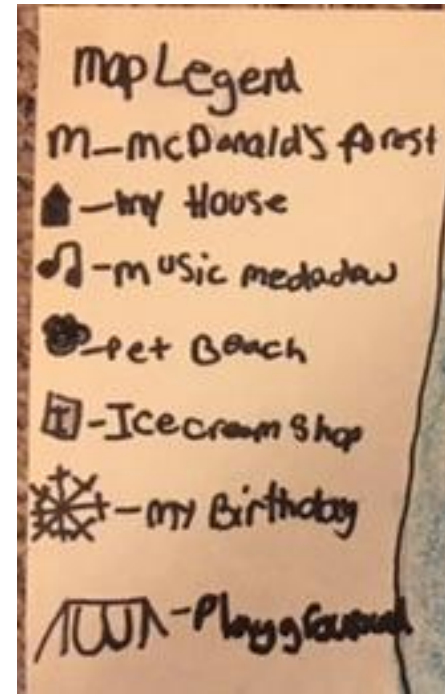 Map Legend
M-McDonald's forest
-my House
-music medadaw
-Pet Beach
I-Icecream Shop
-my Birthday
-Playground